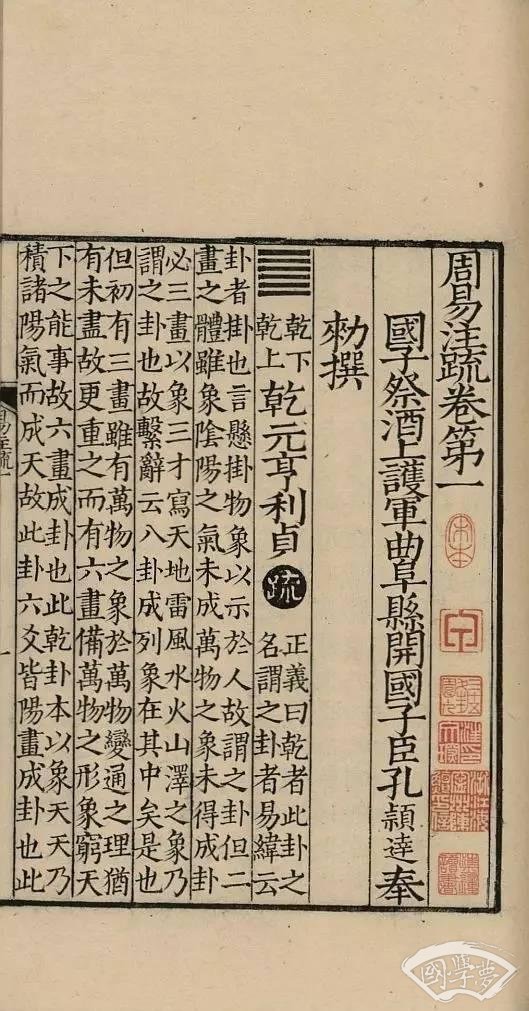 周易注疏卷第一
宋本
國子祭酒上護軍曲阜縣開國子臣孔穎達奉
勑撰
乾下
乾上
乾元亨利貞
疏
正義曰乾者此卦之
名謂之卦者易緯云
卦者掛也言懸掛物象以示於人故謂之卦但二
畫之體雖象陰陽之氣未成萬物之象未得成卦
必三畫以象三才寫天地雷風水火山澤之象乃
謂之卦也故繫辭云八卦成列象在其中矣是也
但初有三畫雖有萬物之象於萬物變通之理猶
有未盡故更重之而有六畫備萬物之形象窮天
下之能事故六畫成卦也此乾卦本以象天天乃
積諸陽氣而成天故此卦六爻皆陽畫成卦也此
易注疏一
一
國學夢